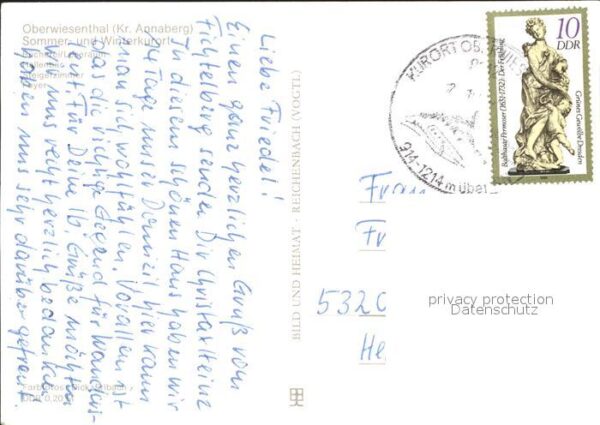 Oberwiesenthal (Kr. Annaberg)
Sommer- und Winterkurort
Liebe Friedel!
Einen ganz herzlichen Gruß vom
Fichtelberg senden Dir Christa + Heinz
In diesem schönen Haus haben wir
Tage unser Domizil hier kann
man sich wohlfühlen. Vorallem ist
das die richtige Gegend für Wanders-
leut. Für Deine lb. Grüße möchten
wir uns recht herzlich bedanken
haben uns sehr darüber gefreut.
BILD UND HEIMAT · REICHENBACH (VOGTL)
KURORT OB
914-1214 m über
10
DDR
Balthasar Permoser (1651-1732) · Der Frühling
Grünes Gewölbe Dresden
Frau
Fr
532
He
privacy protection
Datenschutz